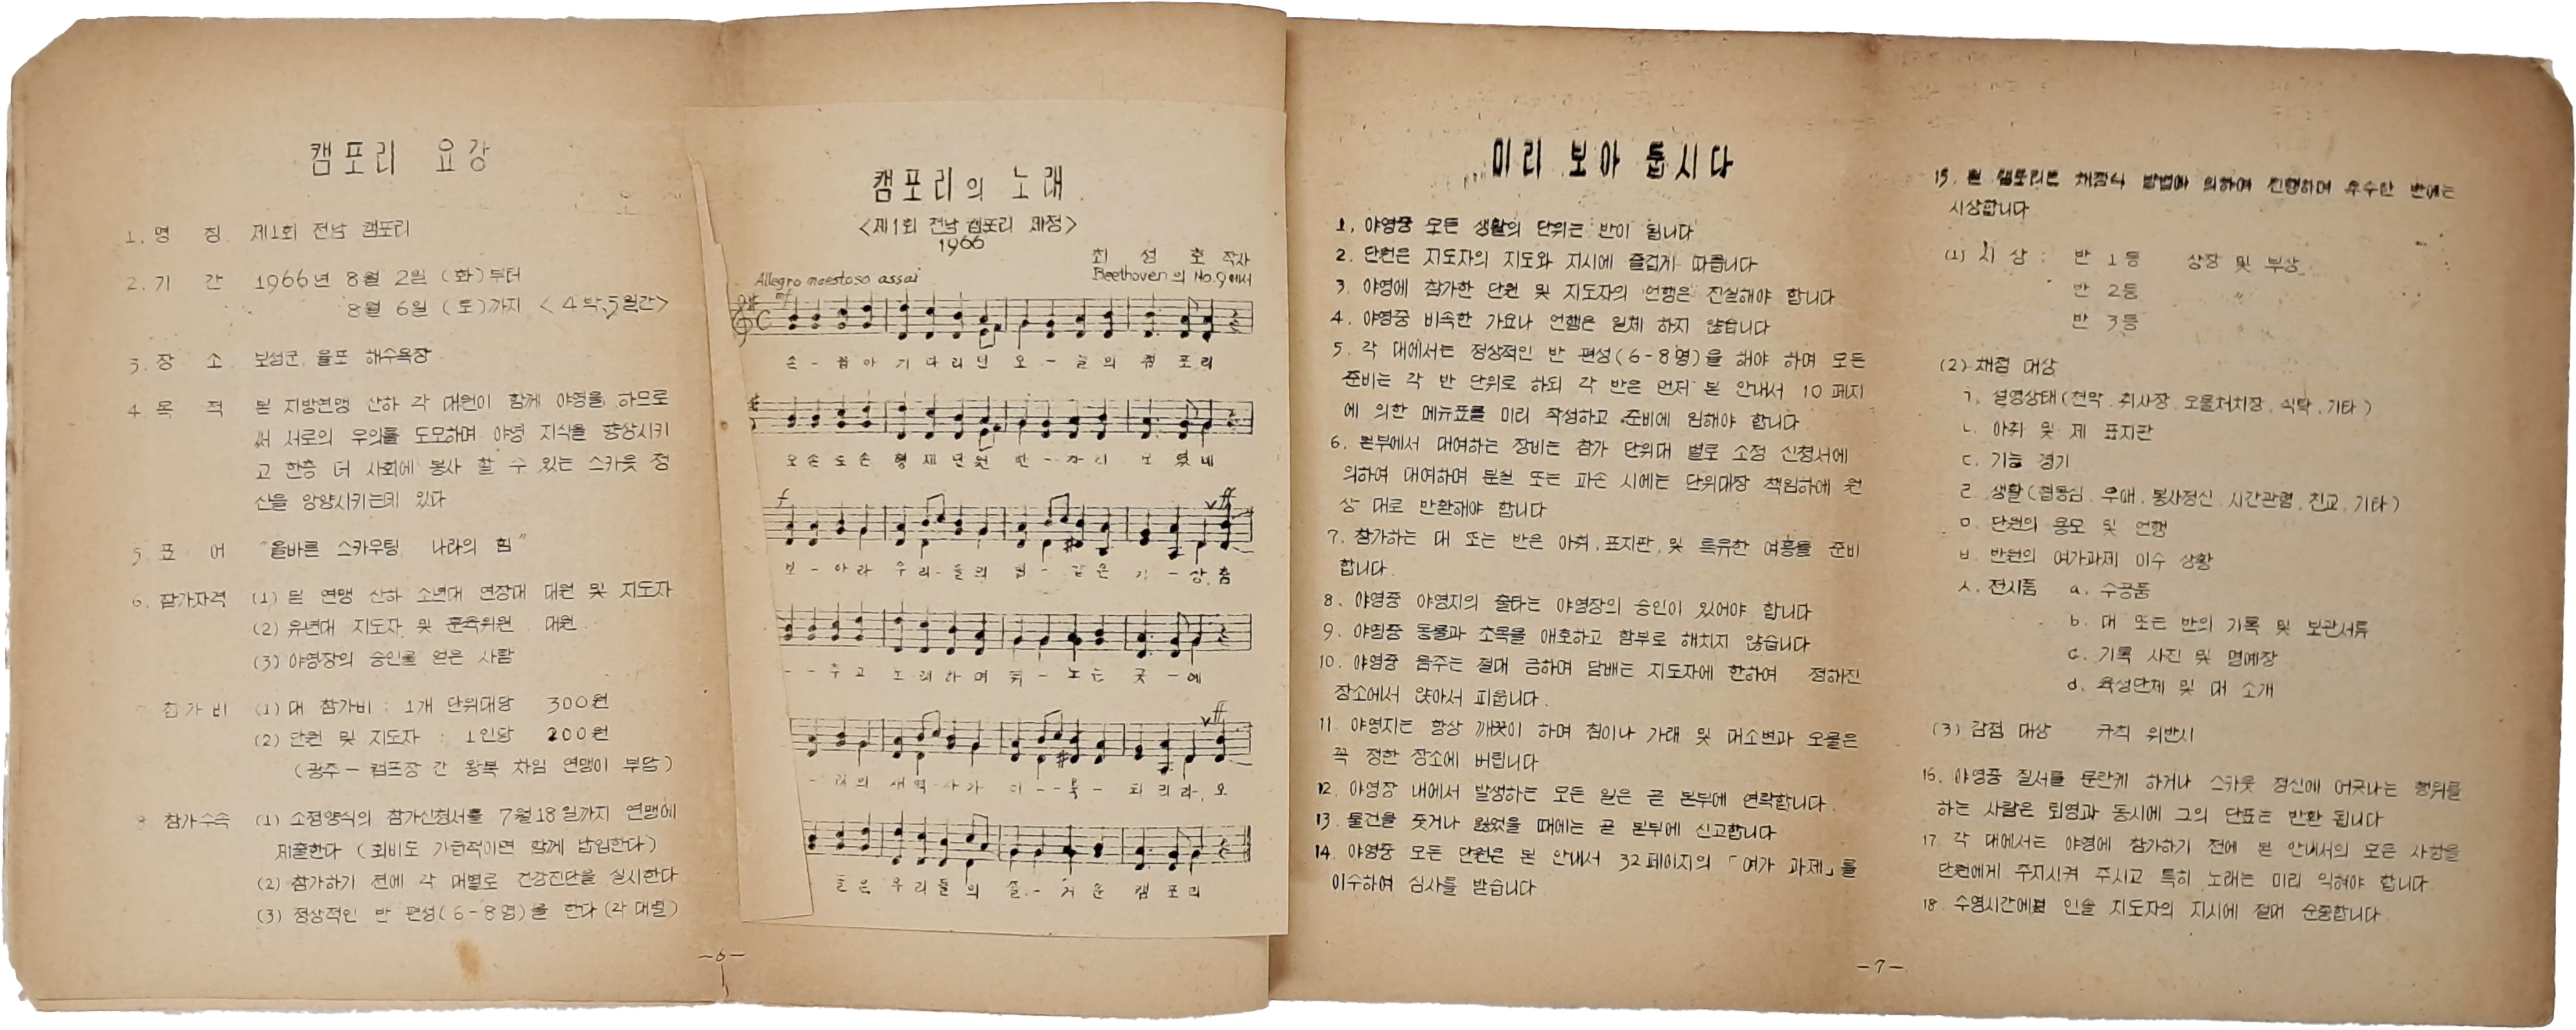 캠포리 요강
1. 명 칭 제1회 전남 캠포리
2. 기 간 1966년 8월 2일 (화)부터
8월 6일 (토)까지 <4박 5일간>
3. 장 소 보성군, 율포 해수욕장
4 목 적 본 지방연맹 산하 각 대원이 함께 야영을 하므로
써 서로의 우의를 도모하며 야영 지식을 향상시키
고 한층 더 사회에 봉사 할 수 있는 스카웃 정
신을 앙양시키는데 있다
5. 표 어 "올바른 스카우팅 나라의 힘"
6. 참가자격 (1) 본 연맹 산하 소년대 연장대 대원 및 지도자
(2) 유년대 지도자 및 훈육위원 대원
(3) 야영장의 승인을 얻은 사람
7 참가비 (1) 대 참가비 : 1개 단위대당 300원
(2) 단원 및 지도자 : 1인당 200원
(광주 - 캠프장 간 왕복 차임 연맹이 부담)
8 참가수속 (1) 소정양식의 참가신청서를 7월 18일까지 연맹에
제출한다 (회비도 가급적이면 함께 납입한다)
(2) 참가하기 전에 각 대별로 건강진단을 실시한다
(3) 정상적인 반 편성(6-8명)을 한다 (각 대별)
-6-
캠포리의 노래
<제1회 전남 캠포리 제정>
1966
최 성 호 작사
Beethoven의 No.9에서
Allegro maestoso assai
mf
손 - 꼽아 기다리던 오 - 늘의 캠 포리
오손도손 형제단원 한 - 자리 모 였네
f
ff
보 - 아라 우리 - 들의 힘 - 같은 기 - 상, 춤
- - 추고 노래하며 뛰 - 노는 곳 - 에
ff
- 래의 새역사가 이 - - 룩 - 되리라, 오
늘은 우리들의 즐 - 거운 캠 포리
미리 보아 둡시다
1, 야영중 모든 생활의 단위는 반이 됩니다
2. 단원은 지도자의 지도와 지시에 즐겁게 따릅니다
3. 야영에 참가한 단원 및 지도자의 언행은 진실해야 합니다
4. 야영중 비속한 가요나 언행은 일체 하지 않습니다
5. 각 대에서는 정상적인 반 편성(6-8명)을 해야 하며 모든
준비는 각 반 단위로 하되 각 반은 먼저 본 안내서 10 페지
에 의한 메뉴표를 미리 작성하고 준비에 임해야 합니다
6. 본부에서 대여하는 장비는 참가 단위대 별로 소정 신청서에
의하여 대여하며 분실 또는 파손 시에는 단위대장 책임하에 원
상 대로 반환해야 합니다
7. 참가하는 대 또는 반은 야취, 표지판, 및 특유한 여흥을 준비
합니다.
8. 야영중 야영지의 출타는 야영장의 승인이 있어야 합니다
9. 야영중 동물과 초목을 애호하고 함부로 해치지 않습니다
10. 야영중 음주는 절대 금하며 담배는 지도자에 한하여 정해진
장소에서 앉아서 피웁니다.
11 야영지는 항상 깨끗이 하며 침이나 가래 및 대소변과 오물은
꼭 정한 장소에 버립니다
12. 야영장 내에서 발생하는 모든 일은 곧 본부에 연락합니다.
13. 물건을 줏거나 잃었을 때에는 곧 본부에 신고합니다
14. 야영중 모든 단원은 본 안내서 32페이지의 「여가 과제」를
이수하여 심사를 받습니다
15. 본 캠포리는 채점식 방법에 의하여 진행하며 우수한 반에는
시상합니다
(1) 시 상 : 반 1등 상장 및 부상
반 2등 〃
반 3등 〃
(2) 채점 대상
ㄱ. 설영상태(천막, 취사장, 오물처치장, 식탁, 기타)
ㄴ. 야취 및 제 표지판
ㄷ. 기능 경기
ㄹ 생활(협동심, 우애, 봉사정신, 시간관렴, 친교, 기타)
ㅁ. 단원의 용모 및 언행
ㅂ. 반원의 여가과제 이수 상황
ㅅ. 전시품 a. 수공품
b. 대 또는 반의 기록 및 보관서류
c. 기록 사진 및 명예장
d. 육성단체 및 대 소개
(3) 감점 대상 규칙 위반시
16. 야영중 질서를 문란케 하거나 스카웃 정신에 어긋나는 행위를
하는 사람은 퇴영과 동시에 그의 단표는 반환 됩니다
17. 각 대에서는 야영에 참가하기 전에 본 안내서의 모든 사항을
단원에게 주지시켜 주시고 특히 노래는 미리 익혀야 합니다.
18. 수영시간에는 인솔 지도자의 지시에 절대 순종합니다
-7-